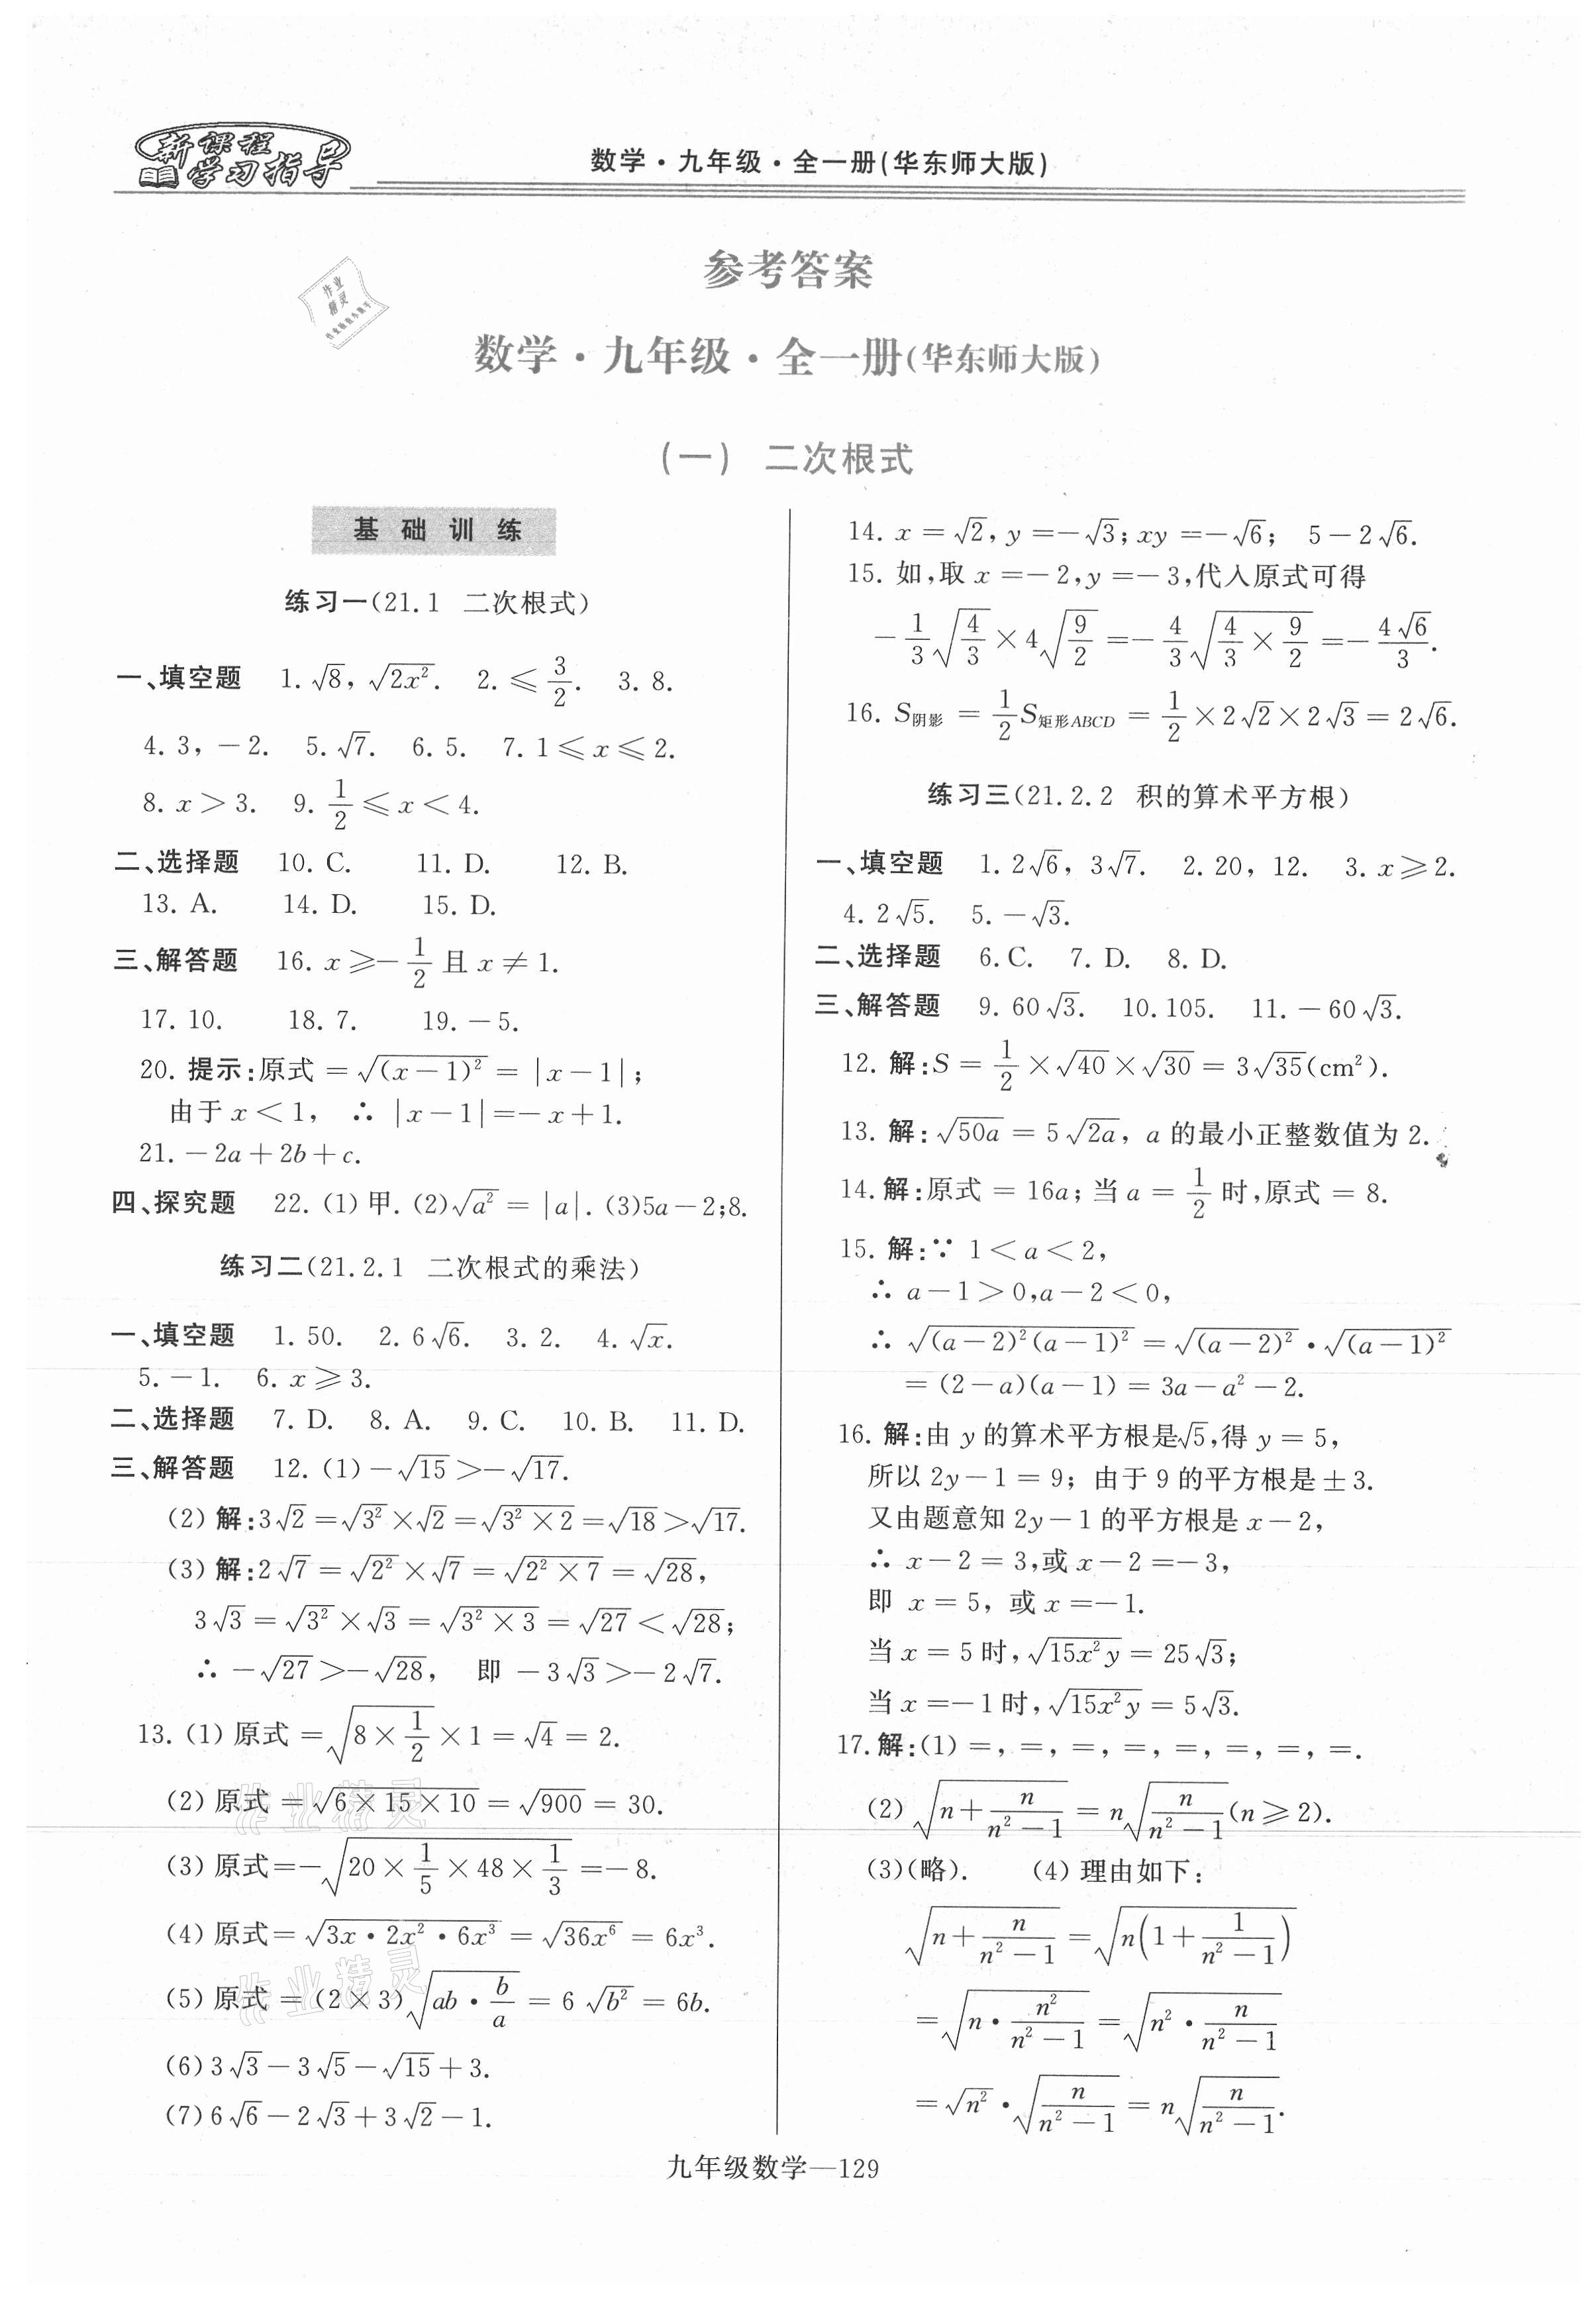 新课程
学习指导
数学·九年级·全一册(华东师大版)
参考答案
作业
精灵
数学·九年级·全一册(华东师大版)
(一) 二次根式
基 础 训 练
练习一(21.1 二次根式)
一、填空题 1. √8, √(2x²). 2. ≤ 3/2. 3. 8.
4. 3, −2. 5. √7. 6. 5. 7. 1≤x≤2.
8. x>3. 9. 1/2≤x<4.
二、选择题 10. C. 11. D. 12. B.
13. A. 14. D. 15. D.
三、解答题 16. x≥−1/2 且 x≠1.
17. 10. 18. 7. 19. −5.
20. 提示:原式 = √((x−1)²) = |x−1|;
由于 x<1, ∴ |x−1|=−x+1.
21. −2a+2b+c.
四、探究题 22. (1) 甲. (2)√(a²) = |a|. (3)5a−2;8.
练习二(21.2.1 二次根式的乘法)
一、填空题 1. 50. 2. 6√6. 3. 2. 4. √x.
5. −1. 6. x≥3.
二、选择题 7. D. 8. A. 9. C. 10. B. 11. D.
三、解答题 12. (1) −√15>−√17.
(2) 解:3√2=√(3²)×√2=√(3²×2)=√18>√17.
(3) 解:2√7=√(2²)×√7=√(2²×7)=√28,
3√3=√(3²)×√3=√(3²×3)=√27<√28;
∴ −√27>−√28, 即 −3√3>−2√7.
13. (1) 原式 = √(8×1/2)×1=√4=2.
(2) 原式 = √(6×15×10) = √900 = 30.
(3) 原式=−√(20×1/5×48×1/3)=−8.
(4) 原式= √(3x·2x²·6x³) = √(36x⁶) = 6x³.
(5) 原式 = (2×3)√(ab·b/a) = 6√(b²) = 6b.
(6) 3√3−3√5−√15+3.
(7) 6√6−2√3+3√2−1.
14. x = √2, y =−√3; xy =−√6; 5−2√6.
15. 如,取 x =−2,y =−3,代入原式可得
−1/3√(4/3)×4√(9/2) =−4/3√(4/3×9/2) =−4√6/3.
16. S阴影 = 1/2S矩形ABCD = 1/2×2√2×2√3 = 2√6.
练习三(21.2.2 积的算术平方根)
一、填空题 1. 2√6, 3√7. 2. 20, 12. 3. x≥2.
4. 2√5. 5. −√3.
二、选择题 6. C. 7. D. 8. D.
三、解答题 9. 60√3. 10. 105. 11. −60√3.
12. 解:S = 1/2×√40×√30 = 3√35(cm²).
13. 解:√(50a) = 5√(2a), a 的最小正整数值为 2.
14. 解:原式 = 16a; 当 a = 1/2 时,原式 = 8.
15. 解:∵ 1<a<2,
∴ a−1>0,a−2<0,
∴ √((a−2)²(a−1)²) = √((a−2)²)·√((a−1)²)
= (2−a)(a−1) = 3a−a²−2.
16. 解:由 y 的算术平方根是√5,得 y = 5,
所以 2y−1 = 9; 由于 9 的平方根是 ±3.
又由题意知 2y−1 的平方根是 x−2,
∴ x−2 = 3,或 x−2 =−3,
即 x = 5, 或 x =−1.
当 x = 5 时,√(15x²y) = 25√3;
当 x =−1 时,√(15x²y) = 5√3.
17. 解:(1) =, =, =, =, =, =, =, =.
(2) √(n+n/(n²−1)) = n√(n/(n²−1)) (n≥2).
(3)(略). (4) 理由如下:
√(n+n/(n²−1)) = √(n(1+1/(n²−1)))
= √(n·n²/(n²−1)) = √(n²·n/(n²−1))
= √(n²)·√(n/(n²−1)) = n√(n/(n²−1)).
作业精灵
作业精灵
九年级数学—129